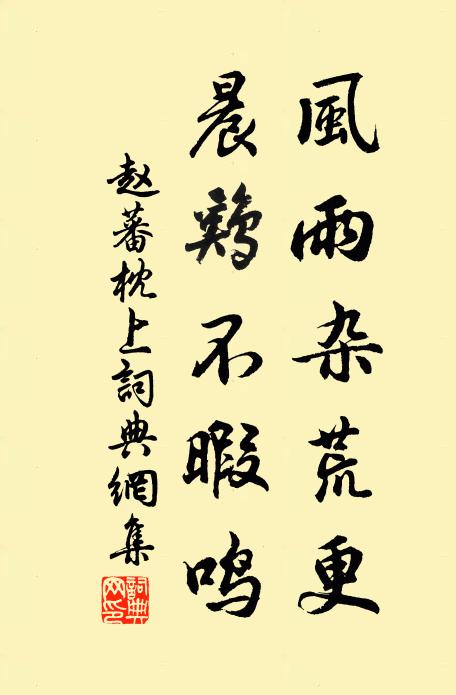 風雨杂荒更
晨鷄不暇鸣
赵蕃枕上詞典網集
詞典网印